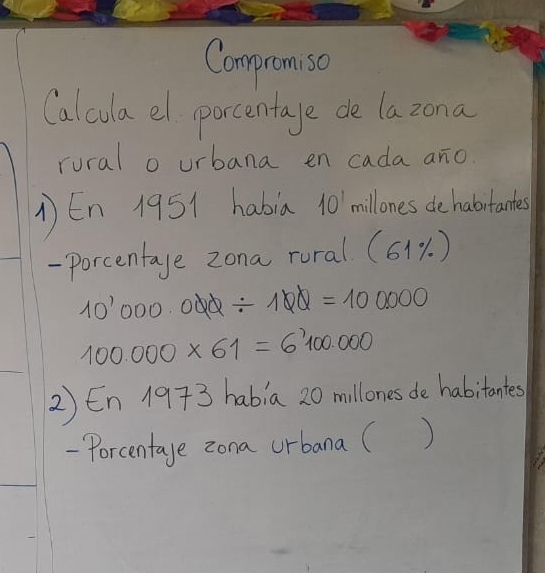 Compromiso
Calcula el porcentaje de la zona
rural o urbana en cada año.
1) En 1951 había 10' millones de habitantes
- Porcentaje zona rural (61%)
10'000.000 ÷ 100 = 100000
100.000 × 61 = 6'100.000
2) En 1973 había 20 millones de habitantes
- Porcentaje zona urbana ( )